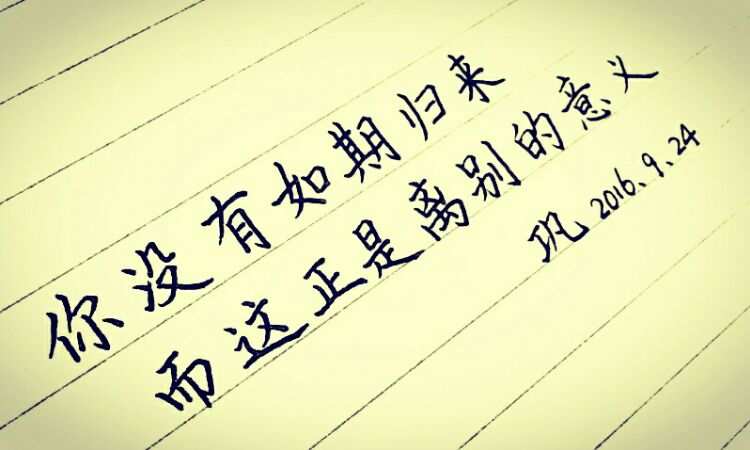 你没有如期归来
而这正是离别的意义
巩 2016、9、24